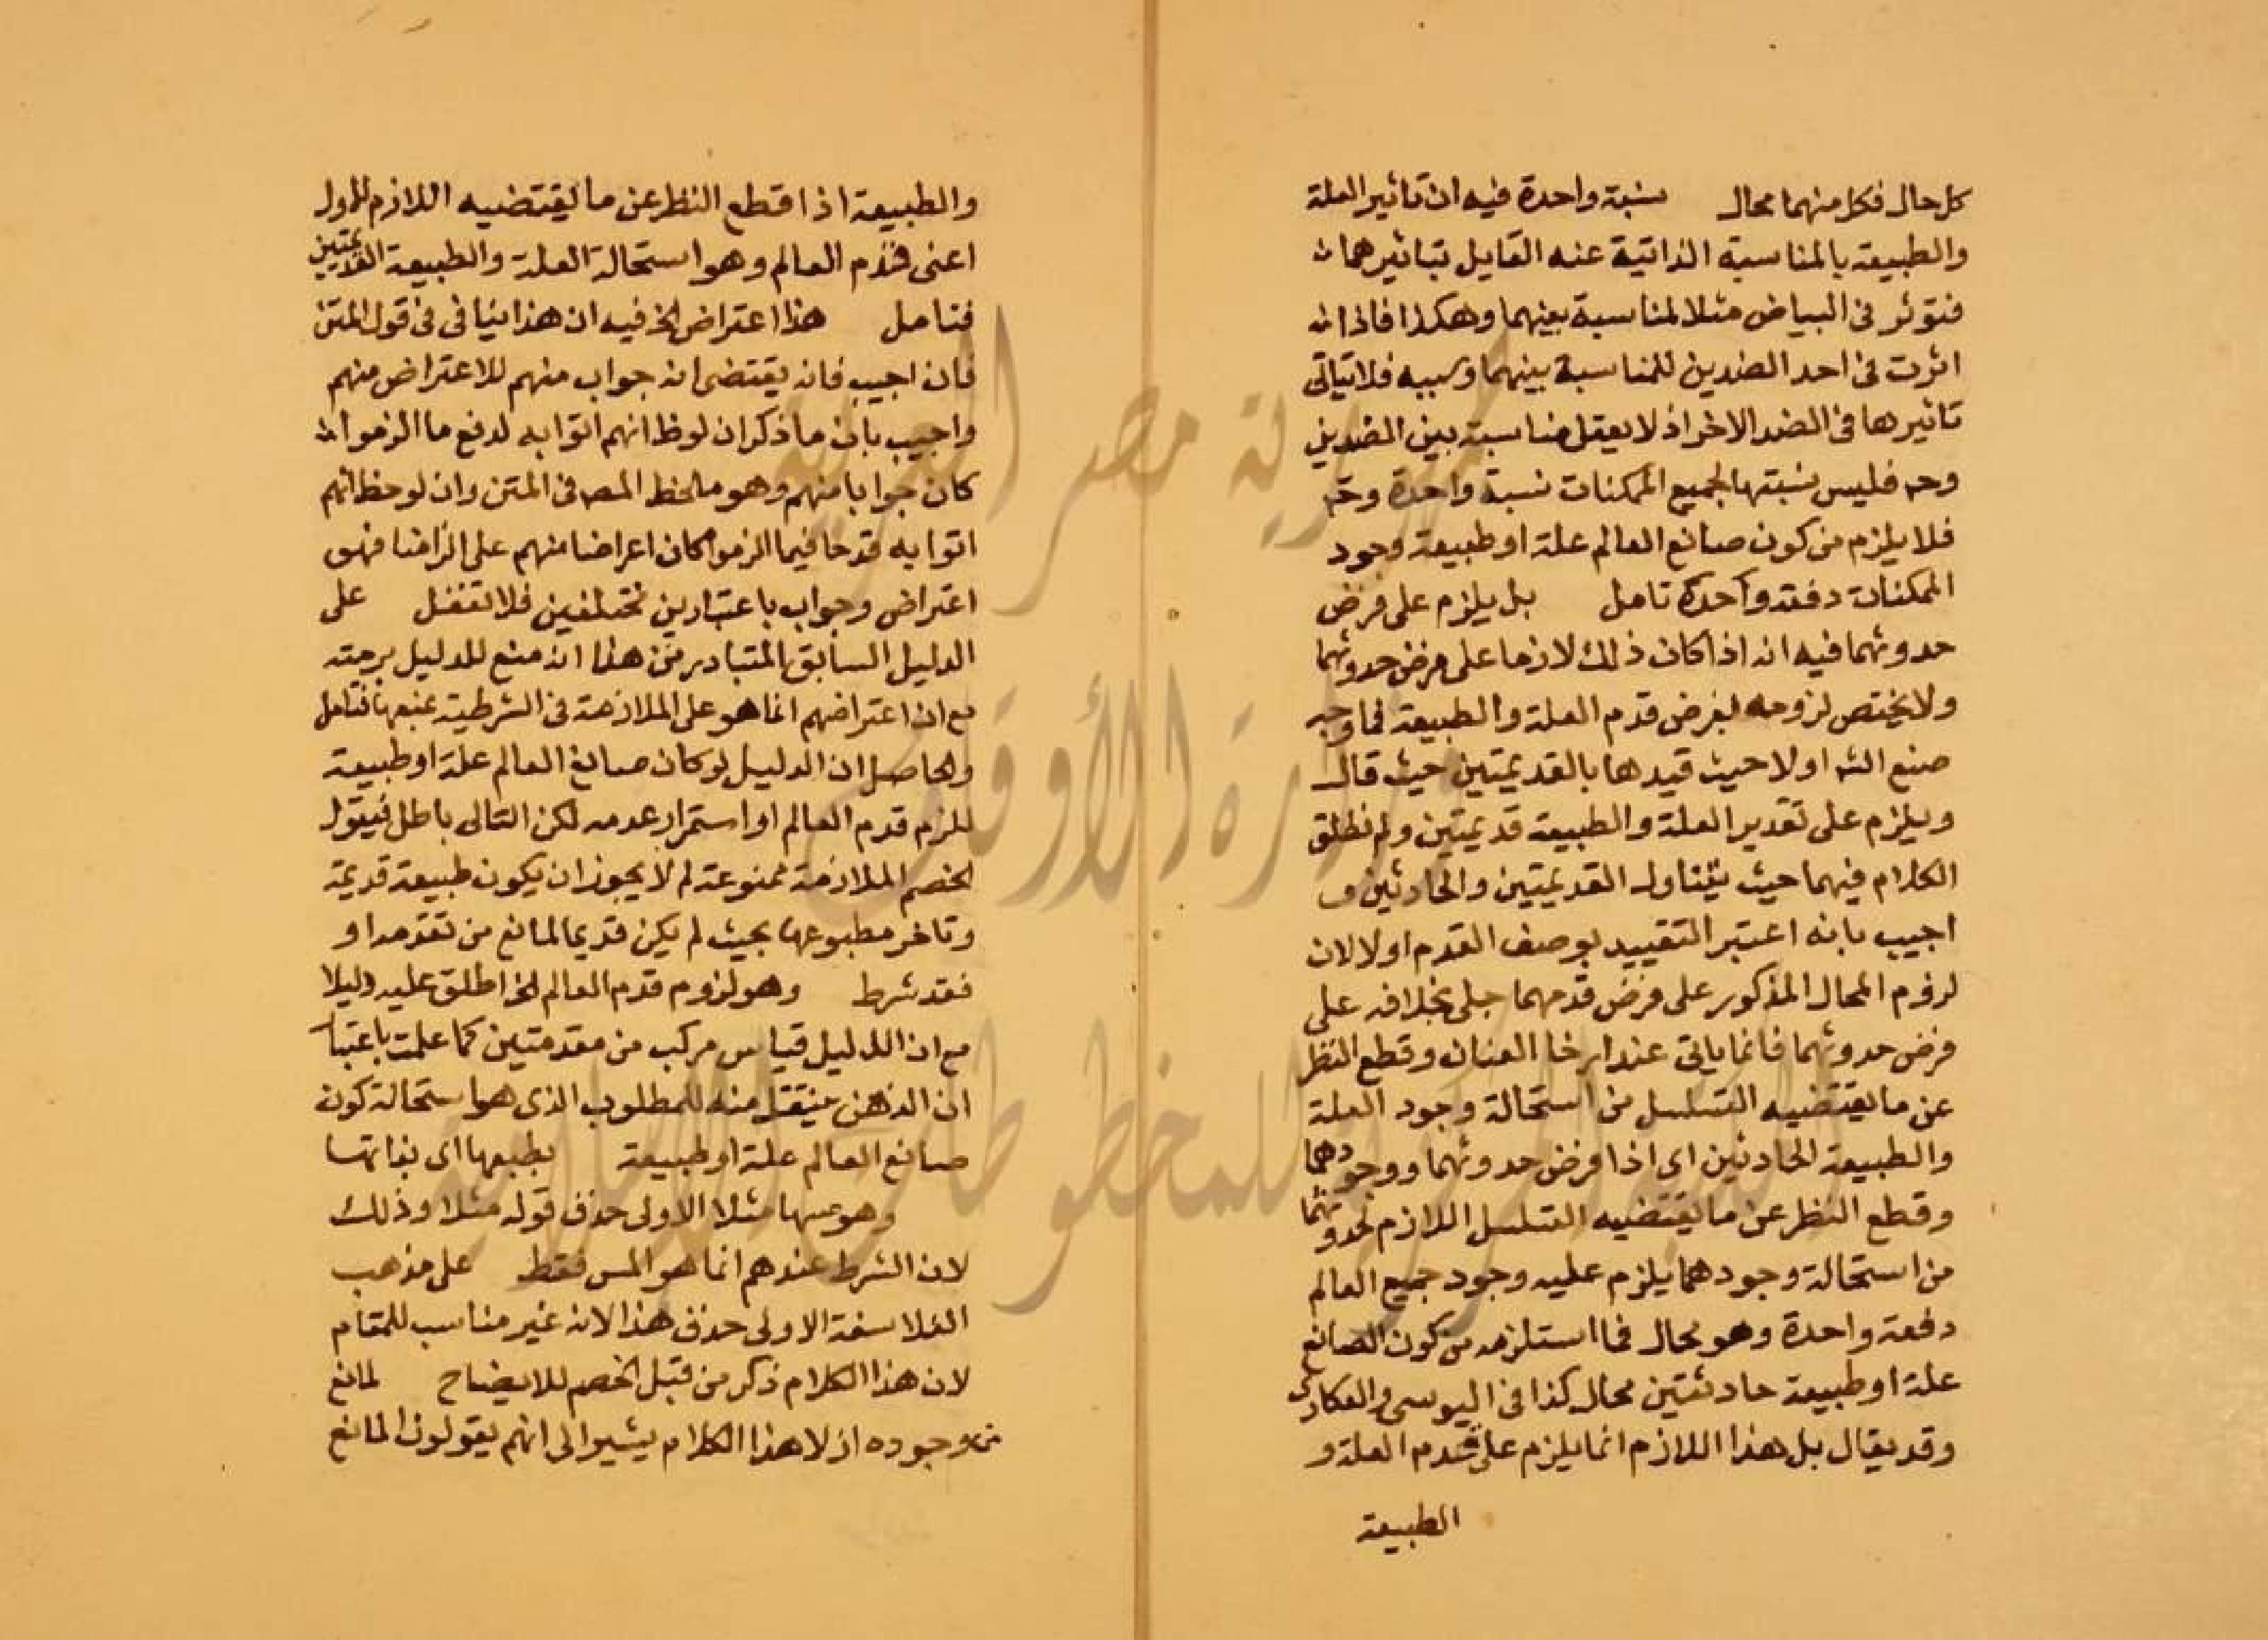 كل حال فكل منهما محال نسبة واحدة فيه ان تاثير العلة
والطبيعة بالمناسبة الذاتية عند القايل بتاثيرهما
فتوثر فى البياض مثلا لمناسبة بينهما وهكذا فاذا
اثرت فى احد الضدين للمناسبة بينهما وسببه فلا يتاتى
تاثيرها فى الضد الاخر اذ لا يعقل مناسبة بين الضدين
وحـ فليس نسبتها لجميع الممكنات نسبة واحدة وحـ
فلا يلزم من كون صانع العالم علة او طبيعة وجود
الممكنات دفعة واحدة تامل بل يلزم على فرض
حدوثهما فيه انه اذا كان ذلك لازما على فرض حدوثهما
ولا يختص لزومه لفرض قدم العلة والطبيعة فما وجه
صنع الشـ اولا حيث قيدها بالقديمتين حيث قال
ويلزم على تقدير العلة والطبيعة قديمتين ولم نطلق
الكلام فيهما حيث يتناول القديمتين والحادثين و
اجيب بانه اعتبر التقييد بوصف القدم اولا لان
لزوم المحال المذكور على فرض قدمهما جلى بخلافه على
فرض حدوثهما فانما ياتى عند ارخا العنان وقطع النظر
عن ما يقتضيه التسلسل من استحالة وجود العلة
والطبيعة الحادثين اى اذا فرض حدوثهما ووجودهما
وقطع النظر عن ما يقتضيه التسلسل اللازم لحدوثهما
من استحالة وجودهما يلزم عليه وجود جميع العالم
دفعة واحدة وهو محال فما استلزمه من كون الصانع
علة او طبيعة حادثتين محال كذا فى اليوسى والعكارى
وقد يقال بل هذا اللازم انما يلزم على قدم العلة و
الطبيعة
والطبيعة اذا قطع النظر عن ما يقتضيه اللازم للاول
اعنى قدم العالم وهو استحالة العلة والطبيعة القديمتين
فتامل هذا اعتراض الخ فيه ان هذا ينافى فى قول المتن
فان اجيب فانه يقتضى انه جواب منهم للاعتراض منهم
واجيب بان ما ذكر ان لوظ انهم اتوا به لدفع ما الزموا
كان جوابا منهم وهو ملحظ المصـ فى المتن وان لوحظ انهم
اتوا به قدحا فيما الزموا كان اعراضا منهم على الزامنا فهو
اعتراض وجواب باعتبارين مختلفين فلا تغفل على
الدليل السابق المتبادر من هذا انه منع للدليل برمته
مع ان اعتراضهم انما هو على الملازمة فى الشرطية بمنعها فتامل
والحاصل ان الدليل لو كان صانع العالم علة او طبيعة
للزم قدم العالم او استمرار عدمه لكن التالى باطل فيقول
الخصم الملازمة ممنوعة لم لا يجوز ان يكون طبيعة قديمة
وتاخر مطبوعها بحيث لم يكن قديما لمانع من تقدمه او
فقد شرط وهو لزوم قدم العالم الخ اطلق عليه دليلا
مع ان الدليل قياس مركب من مقدمتين كما علمت باعتبار
ان الذهن ينتقل منه للمطلوب الذى هو استحالة كون
صانع العالم علة او طبيعة بطبعها اى بذاتها
وهو مسها مثلا الاولى حذف قوله مثلا وذلك
لان الشرط عندهم انما هو المس فقط على مذهب
الفلاسفة الاولى حذف هذا لانه غير مناسب للمقام
لان هذا الكلام ذكر من قبل الخصم للايضاح لمانع
من وجوده ازلا هذا الكلام يشير الى انهم يقولون المانع
جمهورية مصر العربية
وزارة الأوقاف
المكتبة المركزية للمخطوطات الإسلامية